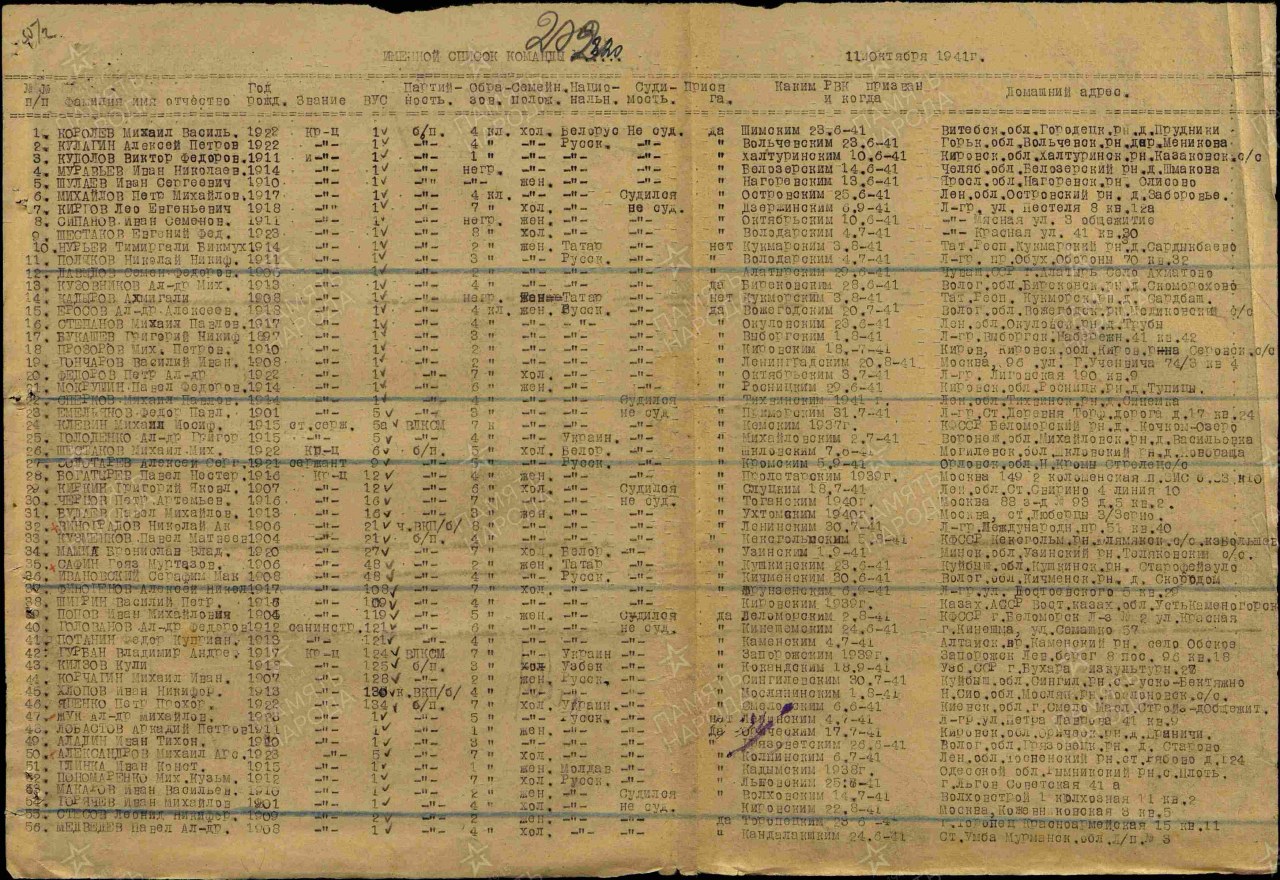 ИМЕННОЙ СПИСОК КОМАНДЫ 11 октября 1941г.
№№ п/п Фамилия имя отчество Год рожд. Звание ВУС Партий-ность. Обра-зов. Семейн. полож. Нацио-нальн. Суди-мость. Прися га. Каким РВК призван и когда Домашний адрес.
1. КОРОЛЕВ Михаил Василь. 1922 кр-ц 1 б/п. 4 кл. хол. Белорус Не суд. да Шимским 23.6-41 Витебск.обл.Городецк.рн.д.Прудники
2. КУЛАГИН Алексей Петров 1922 -"- 1 -"- 4 " -"- Русск. -"- " Вольчевским 23.6-41 Горьк.обл.Вольчевск.рн.дер.Меникова
3. Виктор Федоров.1911 -"- 1 -"- 1 " -"- -"- -"- " Халтуринским 10.6-41 Кировск.обл.халтуринск.рн.Казаковск.с/с
4. МУРАВЬЕВ Иван Николаев.1914 -"- 1 -"- негр. -"- -"- -"- " Белозерским 14.6-41 Челяб.обл.Белозерский рн.д.Шмакова
5. ШУЛАЕВ Иван Сергеевич 1910 -"- 1 -"- -"- жен. -"- -"- " Нагоревским 13.6-41 Яросл.обл.Нагоревск.рн. Олисово
6. МИХАЙЛОВ Петр Михайлов.1917 -"- 1 -"- 4 кл. -"- -"- Судился " Островским 26.6-41 Лен.обл.Островский рн.д.Заборовье.
7. КИРГОВ Лео Евгеньевич 1918 -"- 1 -"- 7 " хол. -"- не суд. " Дзержинским 6.9-41 Л-гр. ул. Пестеля 8 кв.12а
8. СИПАКОВ Иван Семенов. 1911 -"- 1 -"- негр. жен. -"- -"- " Октябрьским 10.6-41 -"- Мясная ул. 3 общежитие
9. ШЕСТАКОВ Евгений Фед. 1923 -"- 1 -"- 8 " хол. -"- -"- " Володарским 4.7-41 -"- Красная ул. 41 кв.30
10. НУРЬЕЙ Тимиргали Бикмух.1914 -"- 1 -"- 2 " жен. Татар -"- нет Кукмарским 3.8-41 Тат.Респ.Кукмарский рн.д.Сардыкбаево
11. ПОЛЯКОВ Николай Никиф. 1911 -"- 1 -"- 3 " -"- Русск. -"- " Володарским 4.7-41 Л-гр. пр.Обух.Обороны 70 кв.32
12. Семен Федоров. -"- 1 -"- 2 " -"- -"- -"- " Алатырским 29.6-41 Чуваш.ССР г.Алатырь село Ахматово
13. КУЗОВНИКОВ Ал-др Мих. 1913 -"- 1 -"- 4 " -"- -"- -"- да Биряковским 28.6-41 Волог.обл.Биряковск.рн.д.Скоморохово
14. КАДЫРОВ Ахмигали 1908 -"- 1 -"- негр. жен Татар -"- нет Кукморским 3.8-41 Тат.Респ. Кукморск.рн.д. Сардбаш.
15. ЕРОСОВ Ал-др Алексеев. 1918 -"- 1 -"- 4 кл. жен. Русск. -"- да Вожегодским 20.7-41 Волог.обл.Вожегодск.рн. с/с
16. СТЕПАНОВ Михаил Павлов.1917 -"- 1 -"- 4 " -"- -"- -"- " Окуловским 23.6-41 Лен.обл.Окуловск.рн.д.Трубы
17. БУКАШЕВ Григорий Никиф 1897 -"- 1 -"- 3 " -"- -"- -"- " Выборгским 1.8-41 Л-гр.Выборгск.Набережн.41 кв.42
18. ПРОЗОРОВ Мих. Петров. 1910 -"- 1 -"- 2 " -"- -"- -"- " Кировским 18.7-41 Киров, Кировск.обл.Киров.рна Серовск.с/с
19. ГОНЧАРОВ Василий Иван. 1908 -"- 1 -"- 2 " -"- -"- -"- " Ленинградским 20.8-41 Москва, 96 ул. 74/3 кв 4
20. ФЕДОРОВ Петр Ал-др 1922 -"- 1 -"- 7 " хол. -"- -"- " Октябрьским 3.7-41 М-гр. Лиговская 100 кв.9
21. МОКРУШИН Павел Федоров.1914 -"- 1 -"- 6 " жен. -"- -"- " Росницким 29.6-41 Кировск.обл.Росницк.рн.д.Тупицы.
22. Михаил Павлов. 1914 -"- 1 -"- 4 " -"- -"- Судился " Тихвинским 1941г. Лен.обл.Тихвинск.рн.д.
23. ЕМЕЛЬЯНОВ Федор Павл. 1901 -"- 5 -"- 3 " -"- -"- не суд. " Приморским 31.7-41 Л-гр.Ст.Деревня Торф.дорога д.17 кв.24
24. КЛЕВИН Михаил Иосиф. 1915 ст.серж. 5а ВЛКСМ 7 " -"- -"- -"- " Кемским 1937г. КФССР Беломорский рн.д.Кочком-Озеро
25. ГОЛОДЕНКО Ал-др Григор 1915 -"- 5 -"- 4 " -"- Украин. -"- " Михайловским 2.7-41 Воронеж.обл.Михайловск.рн.д.Васильовка
26. ШЕСТАКОВ Михаил Мих. 1922 Кр-ц 6 б/п. 5 " хол. Белор. -"- " Шкловским 7.6-41 Могилевск.обл.Шкловский рн.д.Новораща
27. ЗОЛОТАРЕВ Алексей Серг.1921 сержант 9 -"- 5 " -"- Русск. -"- " Кромским 5.9-41 Орловск.обл.Н.Кромы Стрелец с/с
28. БОГАТЫРЕВ Павел Нестер.1916 Кр-ц 12 -"- 4 " жен. -"- -"- " Пролетарским 1939г. Москва 149
29. Григорий Яковл. 1907 -"- 12 -"- 6 " хол. -"- Судился " Слуцким 18.7-41 Лен.обл.Ст.Свирино 4 линия 10
30. ПЕРЦОВ Петр Артемьев. 1916 -"- 16 -"- 7 " хол. -"- не суд. " Таганским 1940г. Москва 88 з-д № 93 д.5 кв.2.
31. БУДАЕВ Павел Михайлов. 1913 -"- 16 -"- 3 " жен. -"- -"- " Ухтомским 1940г. Москва, ст.Люберцы З/Зерно.
32. ВИНОГРАДОВ Николай Ан 1906 -"- 21 ч.ВКП/б/ 8 " -"- -"- -"- " Ленинским 30.7-41 Л-гр.Международн.пр.51 кв.40
33. КУЗМЕНКОВ Павел Матвеев1904 -"- 21 б/п. 4 " -"- -"- -"- " Кексгольмским 5.8-41 КФССР Кексгольм.рн. с/с.
34. МАМИЯ Бронислав Влад. 1920 -"- 27 -"- 7 " хол. Белор. -"- " Узинским 1.9-41 Минск.обл.Узинский рн.Толяковский с/с.
35. САФИН Гояз Муртазов. 1906 -"- 48 -"- 2 " жен. Татар -"- " Кушкинским 23.6-41 Куйбыш.обл.Кушкинск.рн. Старофейзулс
36. ИВАНОВСКИЙ Серафим Мак 1908 -"- 48 -"- 4 " -"- Русск. -"- " Кичменским 30.6-41 Волог.обл.Кичменск.рн.д. Скородом
37. Алексей Никол1917 -"- 108 -"- 7 " хол. -"- -"- " Фрунзенским 6.9-41 Л-гр.ул. Достоевского 5 кв.29
38. ШМЫРИН Василий Петр. -"- 109 -"- 4 " -"- -"- -"- " Кировским 1939г. Казах.АССР Вост.казах.обл.УстьКаменогорск
39. ПОПОВ Иван Михайлович 1904 -"- 119 -"- 5 " жен. -"- Судился да Беломорским 2.8-41 КФССР г.Беломорск Л-з № 2 ул.Красная
40. ГОЛОВАНОВ Ал-др Федоров1912 санинстр. 121 -"- 6 " -"- -"- не суд. " Кинешомским 24.6-41 г.Кинешма, ул.Семашко 57
41. ПОТАНИН Федор Куприан. 1913 -"- 121 -"- 4 " -"- -"- -"- " Каменским 4.7-41 Алтайск.кр.Каменский рн. село Обсков
42. ГУРБАН Владимир Андре. 1917 Кр-ц 124 ВЛКСМ 7 " -"- Украин -"- " Запорожским 1939г. Запорожск Лев.берег 8 пос. 96 кв.18
43. КИЛЗОВ Кули -"- 125 б/п. 3 " хол Узбек -"- " Кокандским 18.9-41 Узб.ССР г.Бухара Физкультуры.27
44. КОРЧАГИН Михаил Иван. 1907 -"- 128 -"- 2 " жен. Русск. -"- " Сингилевским 30.7-41 Куйбыш.обл.Сингил.рн.с.Руско-Бектяжно
45. ХЛОПОВ Иван Никифор. 1913 -"- к.ВКП/б/ 4 " -"- -"- -"- " Мослянинским 1.8-41 Н.Сиб.обл.Мослян.рн. с/с.
46. ЯЦЕНКО Петр Прохор. 1922 -"- 134 б/п. 7 " хол. Украин. -"- " Смелоским 6.6-41 Киевск.обл.г.Смело
47. ЖУК Ал-др михайлов. -"- 1 -"- 5 " -"- Русск. -"- нет 4.7-41 Л-гр.ул.Петра Лаврова 41 кв.9
48. ЛОБАСТОВ Аркадий Петров1911 -"- 1 -"- 4 " жен. -"- -"- да 17.7-41 Киров.обл.Оричевск.рн.д.Криничи.
49. АЛАДИН Иван Тихон. -"- 1 -"- 3 " -"- -"- -"- " Грязоветским 26.6-41 Волог.обл.Грязовецк.рн. д. Старово
50. АЛЕКСАНДРОВ Михаил Арс.1923 -"- 5 -"- 7 " хол. -"- -"- " Колпинским 6.7-41 Лен.обл.Тосненский рн.ст.Рябово д.124
51. ГЛИНКА Иван Конст. 1915 -"- 1 -"- 1 " жен. Молдав -"- " Кадымским 1938г. Одесской обл.Рымнинский рн.с.Плоть.
52. ПОНОМАРЕНКО Мих.Кузьм. 1912 -"- 1 -"- 7 " хол. Русск. -"- " Льговским 25.6-41 г.Льгов Советская 41 а
53. МАКАРОВ Иван Васильен. -"- 1 -"- 2 " жен. -"- Судился " Волховским 14.7-41 Волховстрой 1 колхозная 11 кв.2
54. ГОРЯЧЕВ Иван Михайлов 1901 -"- 1 -"- 4 " хол. -"- не суд. " Кировским 22.8-41 Москва,Кожевниковская 3 кв.5
55. Леонид Никифер. 1909 -"- 2 -"- 2 " жен. -"- -"- да Торопецким 23.6-41 г.Торопец Красноармейская 15 кв.11
56. МЕДВЕДЕВ Павел Ал-др. 1908 -"- 1 -"- 4 " хол. -"- -"- " Кандалакшким 24.6-41 Ст.Умба Мурманск.обл.Л/п.№ 3